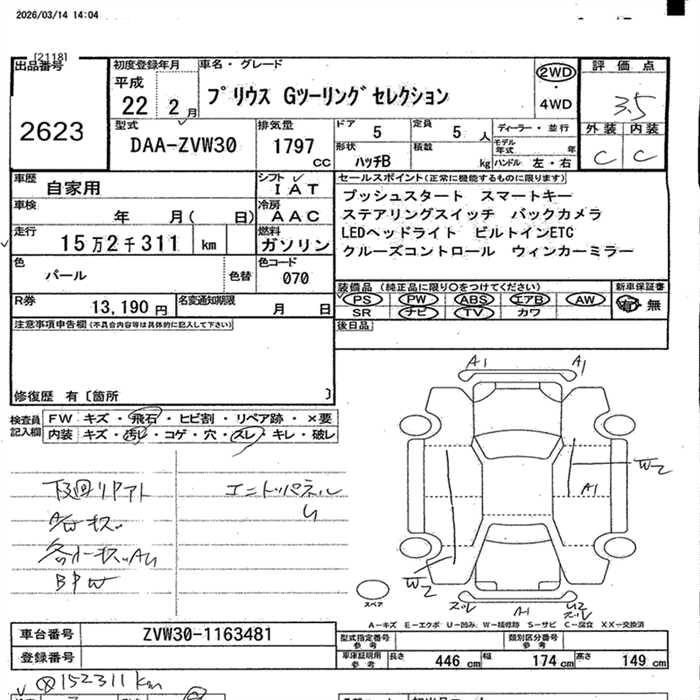 2026/03/14 14:04
[2118]
出品番号
2623
初度登録年月
平成
22 2月
車名・グレード
プリウス Gツーリングセレクション
2WD
・
4WD
評価点
3.5
外装 内装
C C
型式
DAA-ZVW30
排気量
1797
cc
ドア 5
定員 5 人
形状
ハッチB
積載
kg
ディーラー・並行
モデル年式 年
ハンドル 左・右
車歴 自家用
シフト IAT
車検 年 月( 日)
冷房 AAC
走行 15万2千311 km
燃料 ガソリン
色 パール 色替
色コード 070
R券 13,190 円
名変通知期限 月 日
セールスポイント(正常に機能するものに限ります)
プッシュスタート スマートキー
ステアリングスイッチ バックカメラ
LEDヘッドライト ビルトインETC
クルーズコントロール ウィンカーミラー
装備品 (純正品に限り○をつけてください)
PS PW ABS エアB AW
SR ナビ TV カワ
新車保証書
有 無
後日品
注意事項申告欄(不具合内容等は具体的に記入して下さい)
修復歴 有〔箇所 〕
検査員記入欄
FW キズ・飛石・ヒビ割・リペア跡・×要
内装 キズ・汚レ・コゲ・穴・スレ・キレ・破レ
下回リサアト
各キズ
各小キズ,AU
BPW
エンドパネル
U
A1 A1
W2
A1
W2
スレ A1 U2
スレ
スペア
A－キズ E－エクボ U－凹み W－補修跡 S－サビ C－腐食 XX－交換済
車台番号 ZVW30-1163481
登録番号
型式指定番号 参考
類別区分番号 参考
車庫証明用 参考
長さ 446 cm
幅 174 cm
高さ 149 cm
152311 km